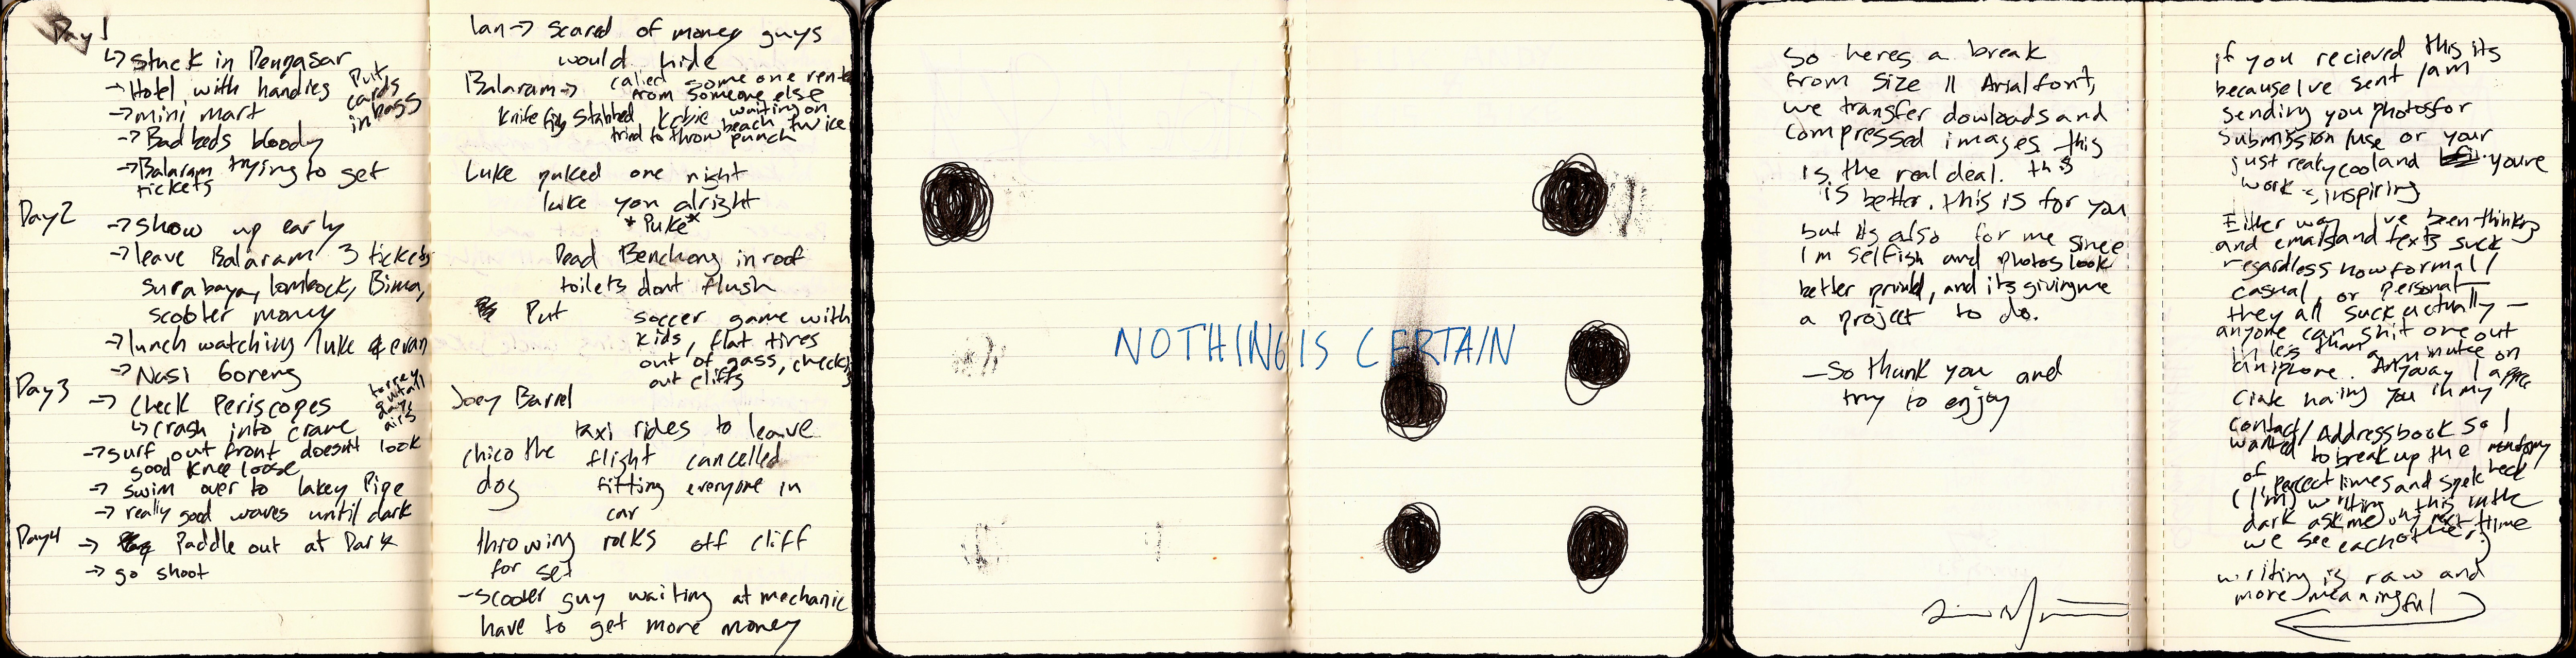 Day 1
↳ stuck in Denpasar
→ Hotel with handies
Put
cards
in bags
→ mini mart
→ Bad beds bloody
→ Balaram trying to get
tickets
Day 2
→ show up early
→ leave Balaram 3 tickets
surabaya, lombock, Bima,
scooter money
→ lunch watching luke & evan
→ Nasi Goreng
Day 3
→ check Periscopes
↳ crash into crane
days
airs
→ surf out front doesnt look
good knee loose
→ swim over to lakey Pipe
→ really good waves until dark
Day 4
→ Paddle out at Dark
→ go shoot
Ian → scared of money guys
would hide
Balaram → called some one rent
from someone else
knife stabbed waiting on
beach twice
tried to throw punch
Luke puked one night
luke you alright
*Puke*
Dead Benchong in roof
toilets dont flush
Put
soccer game with
kids, flat tires
out of gass, check
out cliffs
Joey Barrel
taxi rides to leave
chico the
dog
flight cancelled
fitting everyone in
car
throwing rocks off cliff
for set
- scooter guy waiting at mechanic
have to get more money
NOTHING IS CERTAIN
So heres a break
from size 11 Arial font,
we transfer dowloads and
compressed images. this
is the real deal. this
is better. this is for you
but its also for me since
I'm selfish and photos look
better printed, and its giving me
a project to do.
- So thank you and
try to enjoy
if you recieved this its
because Ive sent / am
sending you photos for
submission / use or your
just really cool and youre
work is inspiring
Either way Ive been thinking
and emails and texts suck
regardless how formal /
casual, or personal -
they all suck actually -
anyone can shit one out
in less than a minute on
an iphone. Anyway I appre
ciate having you in my
contact / Address book so I
wanted to break up the monotony
of perfect lines and spell check
(I'm) writing this in the
dark ask me why next time
we see each other)
writing is raw and
more meaningful